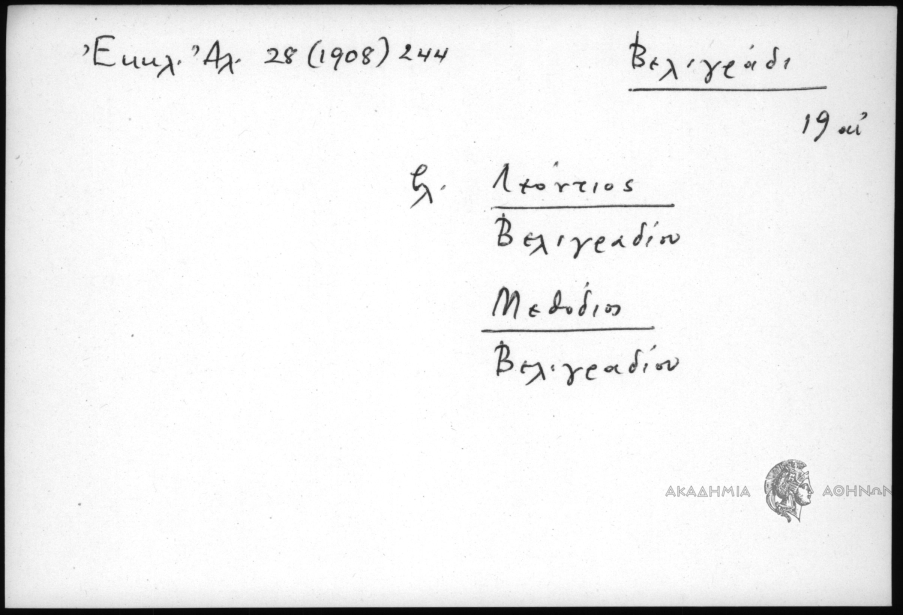 Ἐκκλ. Ἀλ. 28 (1908) 244
Βελιγράδι
19 αἰ
βλ. Λεόντιος
Βελιγραδίου
Μεθόδιος
Βελιγραδίου
ΑΚΑΔΗΜΙΑ ΑΘΗΝΩΝ